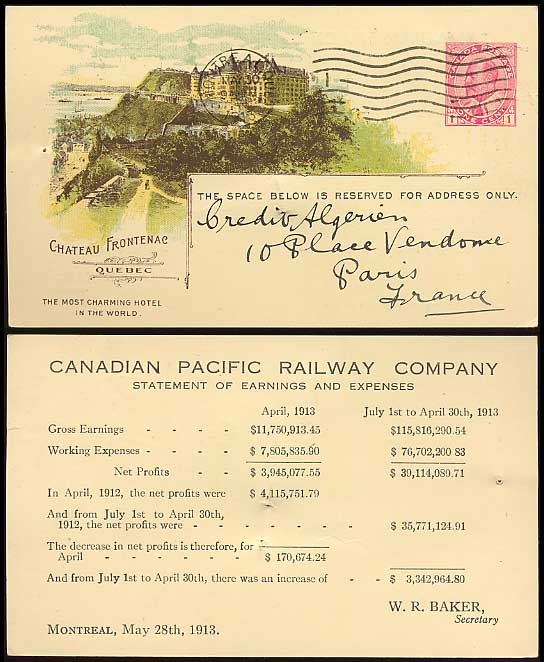 CANADA POSTAGE
1 ONE CENT 1
THE SPACE BELOW IS RESERVED FOR ADDRESS ONLY.
Credit Algerien
10 Place Vendome
Paris
France
CHATEAU FRONTENAC
QUEBEC
THE MOST CHARMING HOTEL
IN THE WORLD.
CANADIAN PACIFIC RAILWAY COMPANY
STATEMENT OF EARNINGS AND EXPENSES
April, 1913 July 1st to April 30th, 1913
Gross Earnings - - - - $11,750,913.45 $115,816,290.54
Working Expenses - - - - $ 7,805,835.90 $ 76,702,200 83
Net Profits - - $ 3,945,077.55 $ 39,114,089.71
In April, 1912, the net profits were $ 4,115,751.79
And from July 1st to April 30th,
1912, the net profits were - - - - - - - $ 35,771,124.91
The decrease in net profits is therefore, for
April - - - - - - $ 170,674.24
And from July 1st to April 30th, there was an increase of - - $ 3,342,964.80
W. R. BAKER,
Secretary
MONTREAL, May 28th, 1913.